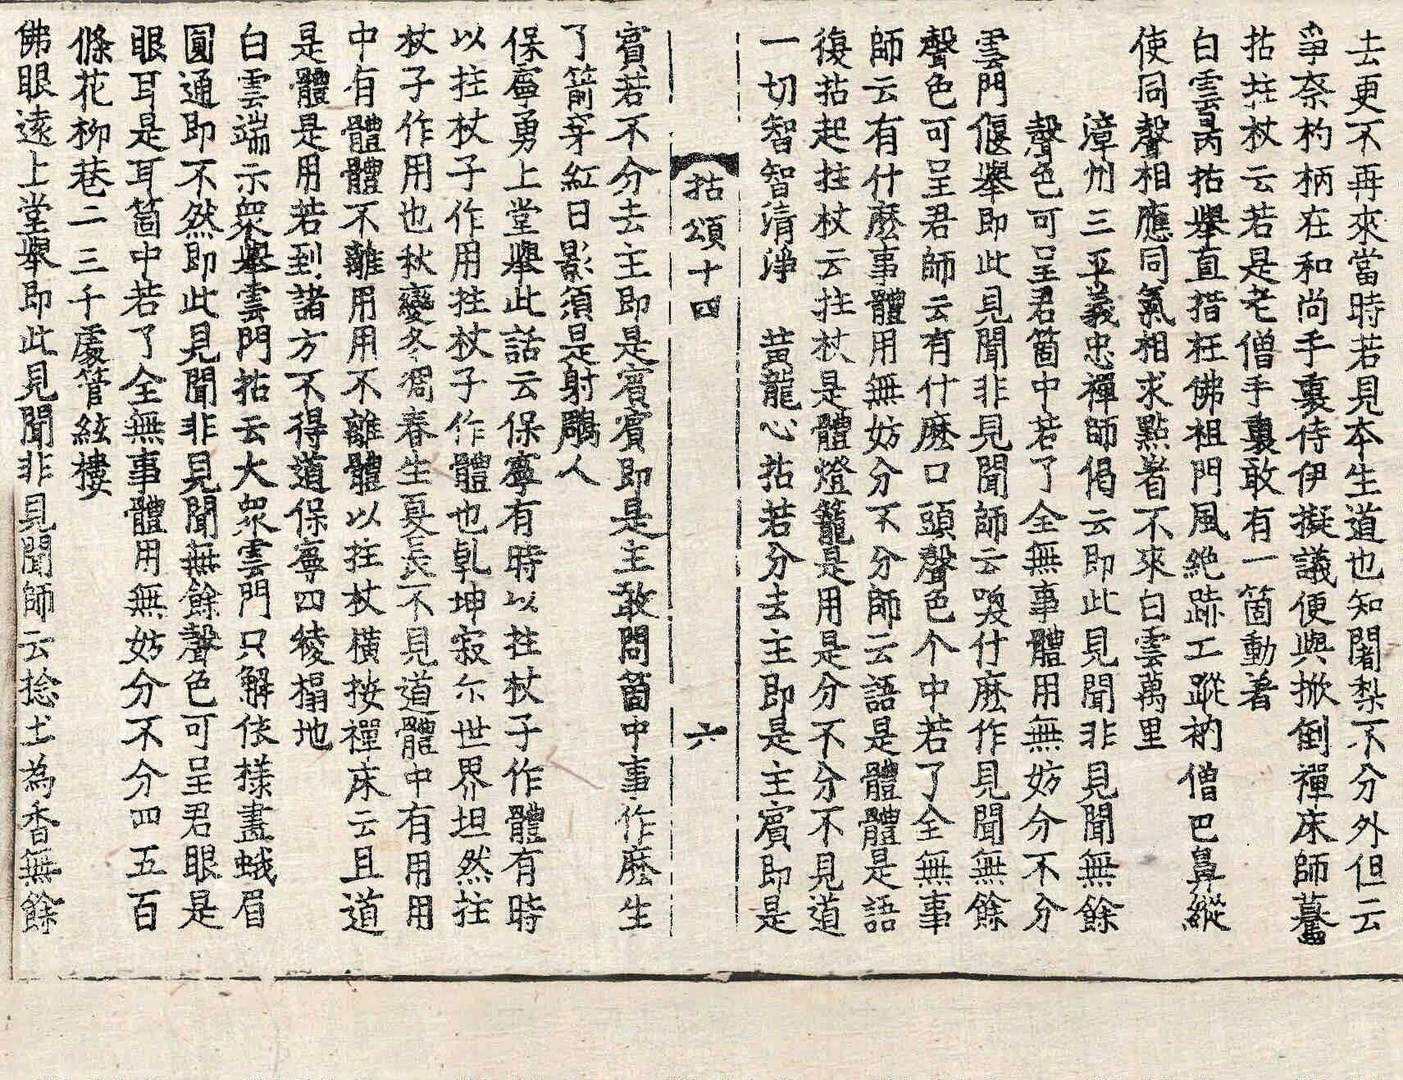 去更不再來當時若見本生道也知闍梨不分外但云
爭奈杓柄在和尚手裏待伊擬議便與掀倒禪床師驀
拈拄杖云若是老僧手裏敢有一箇動著
白雲昺拈舉直措枉佛祖門風絕跡工蹤衲僧巴鼻縱
使同聲相應同氣相求點著不來白雲萬里
漳州三平義忠禪師偈云即此見聞非見聞無餘
聲色可呈君箇中若了全無事體用無妨分不分
雲門偃舉即此見聞非見聞師云喚什麽作見聞無餘
聲色可呈君師云有什麽口頭聲色个中若了全無事
師云有什麽事體用無妨分不分師云語是體體是語
復拈起拄杖云拄杖是體燈籠是用是分不分不見道
一切智智清淨 黃龍心拈若分去主即是主賓即是
拈頌十四 六
賓若不分去主即是賓賓即是主敢問箇中事作麽生
了箭穿紅日影須是射鵰人
保寧勇上堂舉此話云保寧有時以拄杖子作體有時
以拄杖子作用拄杖子作體也乹坤寂尒世界坦然拄
杖子作用也秋變冬凋春生夏長不見道體中有用用
中有體體不離用用不離體以拄杖橫按禪床云且道
是體是用若到諸方不得道保寧四稜榻地
白雲端示衆舉雲門拈云大衆雲門只解依樣畫蛾眉
圓通即不然即此見聞非見聞無餘聲色可呈君眼是
眼耳是耳箇中若了全無事體用無妨分不分四五百
條花柳巷二三千處管絃樓
佛眼遠上堂舉即此見聞非見聞師云捻土為香無餘